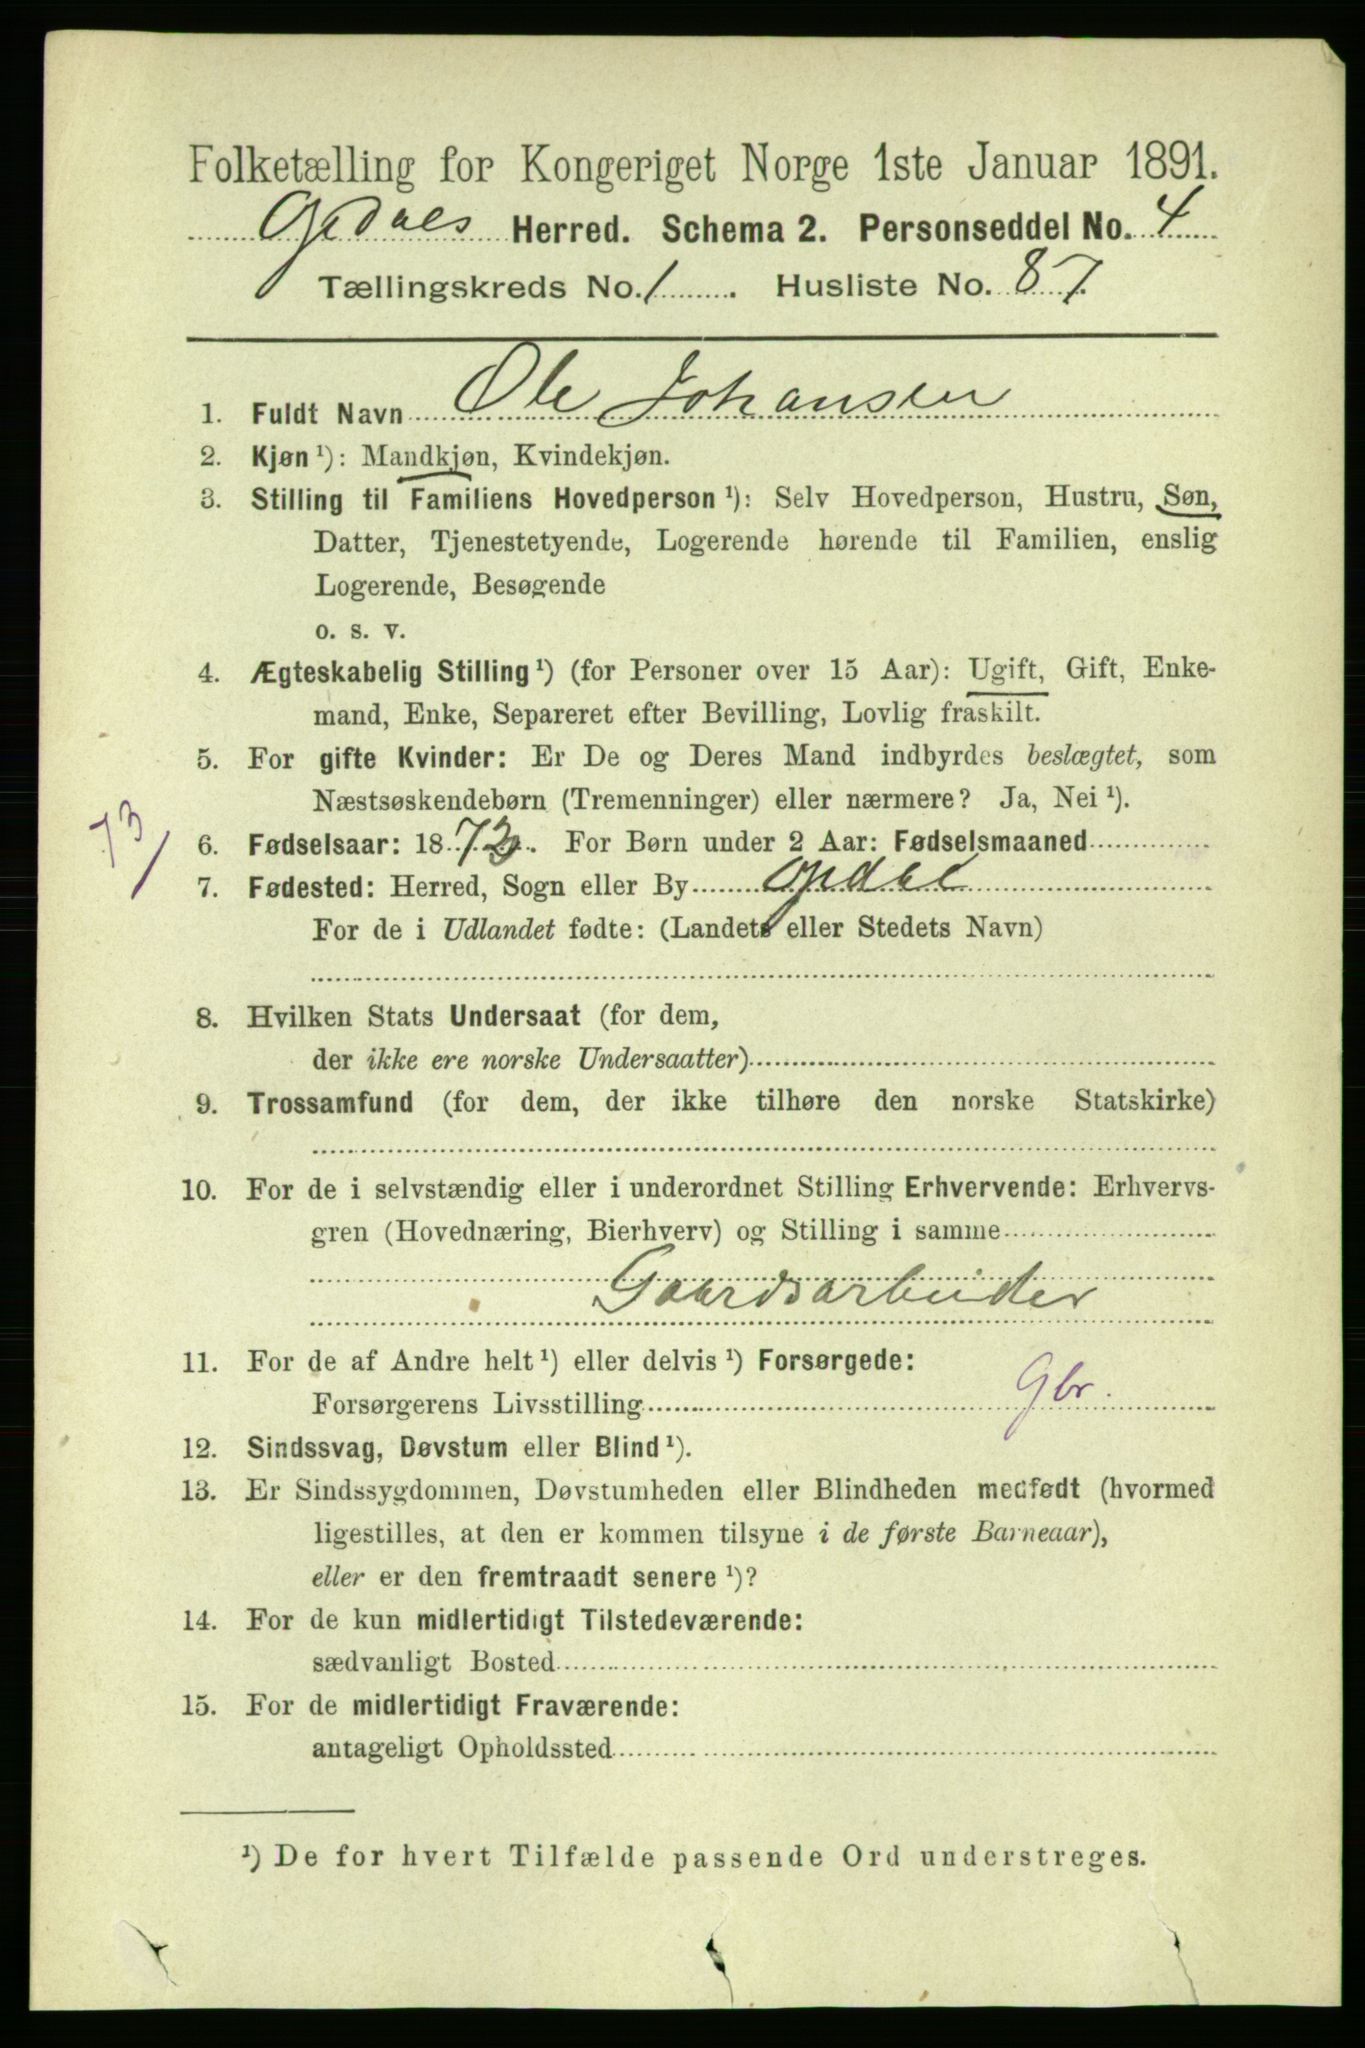 Folketælling for Kongeriget Norge 1ste Januar 1891.
Opdals Herred. Schema 2. Personseddel No. 4
Tællingskreds No. 1. Husliste No. 87.
1. Fuldt Navn Ole Johansen
2. Kjøn ¹): Mandkjøn, Kvindekjøn.
3. Stilling til Familiens Hovedperson ¹): Selv Hovedperson, Hustru, Søn,
Datter, Tjenestetyende, Logerende hørende til Familien, enslig
Logerende, Besøgende
o. s. v.
4. Ægteskabelig Stilling ¹) (for Personer over 15 Aar): Ugift, Gift, Enke-
mand, Enke, Separeret efter Bevilling, Lovlig fraskilt.
5. For gifte Kvinder: Er De og Deres Mand indbyrdes beslægtet, som
Næstsøskendebørn (Tremenninger) eller nærmere? Ja, Nei ¹).
73/
6. Fødselsaar: 1873. For Børn under 2 Aar: Fødselsmaaned
7. Fødested: Herred, Sogn eller By Opdal
For de i Udlandet fødte: (Landets eller Stedets Navn)
8. Hvilken Stats Undersaat (for dem,
der ikke ere norske Undersaatter)
9. Trossamfund (for dem, der ikke tilhøre den norske Statskirke)
10. For de i selvstændig eller i underordnet Stilling Erhvervende: Erhvervs-
gren (Hovednæring, Bierhverv) og Stilling i samme
Gaardsarbeider
11. For de af Andre helt ¹) eller delvis ¹) Forsørgede:
Forsørgerens Livsstilling Gbr.
12. Sindssvag, Døvstum eller Blind ¹).
13. Er Sindssygdommen, Døvstumheden eller Blindheden medfødt (hvormed
ligestilles, at den er kommen tilsyne i de første Barneaar),
eller er den fremtraadt senere ¹)?
14. For de kun midlertidigt Tilstedeværende:
sædvanligt Bosted
15. For de midlertidigt Fraværende:
antageligt Opholdssted
¹) De for hvert Tilfælde passende Ord understreges.